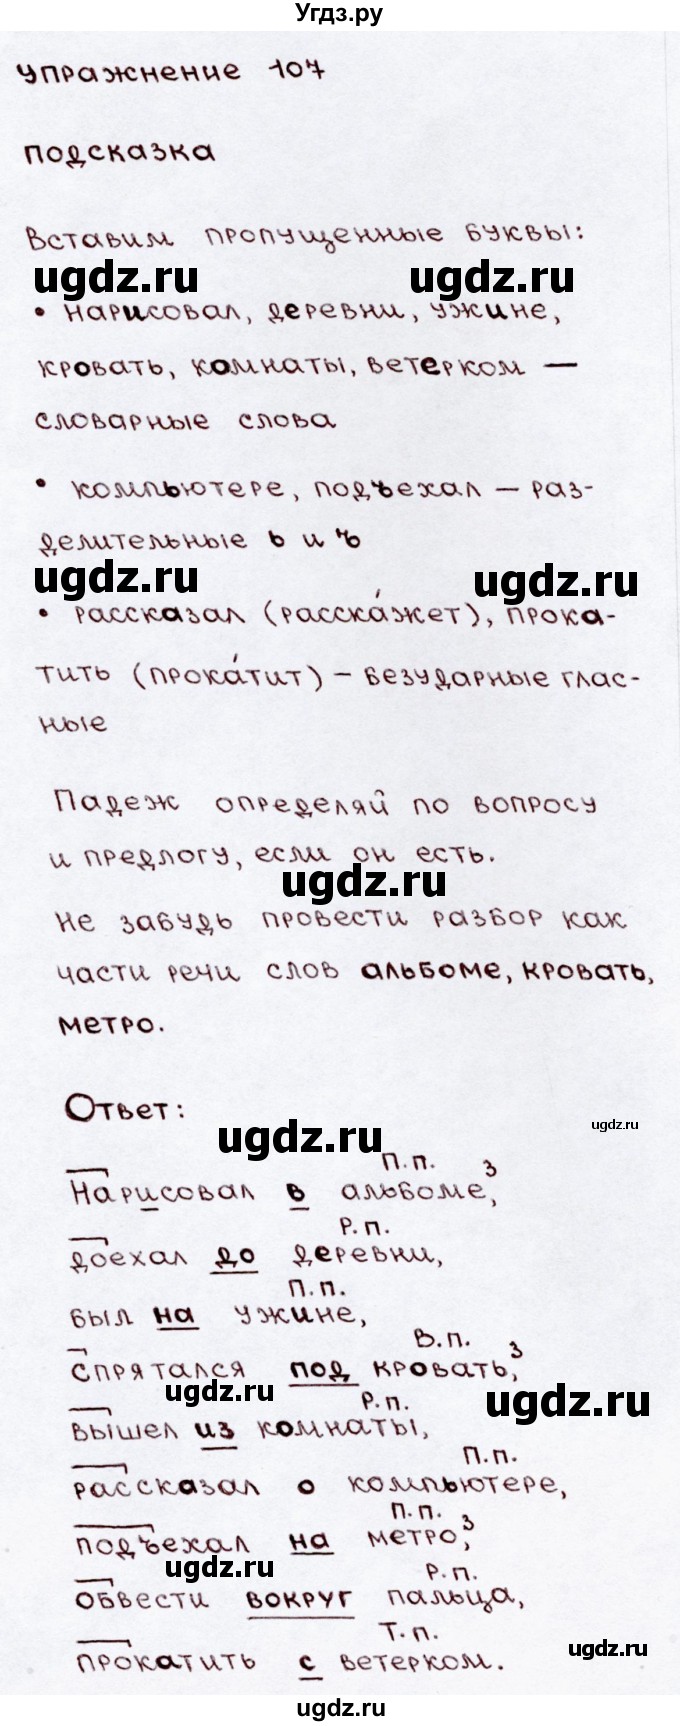 Угдз.ру
Упражнение 107
Подсказка
Вставим пропущенные буквы:
ugdz.ru ugdz.ru
• нарисовал, деревни, ужине,
кровать, комнаты, ветерком —
словарные слова
• компьютере, подъехал – раз-
делительные ь и ъ
ugdz.ru ugdz.ru
• рассказал (расска́жет), прока-
тить (прока́тит) – безударные глас-
ные
Падеж определяй по вопросу
и предлогу, если он есть.
ugdz.ru
Не забудь провести разбор как
части речи слов альбоме, кровать,
метро.
Ответ:
ugdz.ru ugdz.ru
П.п. 3
Нарисовал в альбоме,
Р.п.
доехал до деревни,
П.п.
был на ужине,
В.п. 3
спрятался под кровать,
ugdz.ru ugdz.ru
Р.п.
вышел из комнаты,
П.п.
рассказал о компьютере,
П.п. 3
подъехал на метро,
ugdz.ru
Р.п.
обвести вокруг пальца,
Т.п.
ugdz.ru
прокатить с ветерком.
ugdz.ru